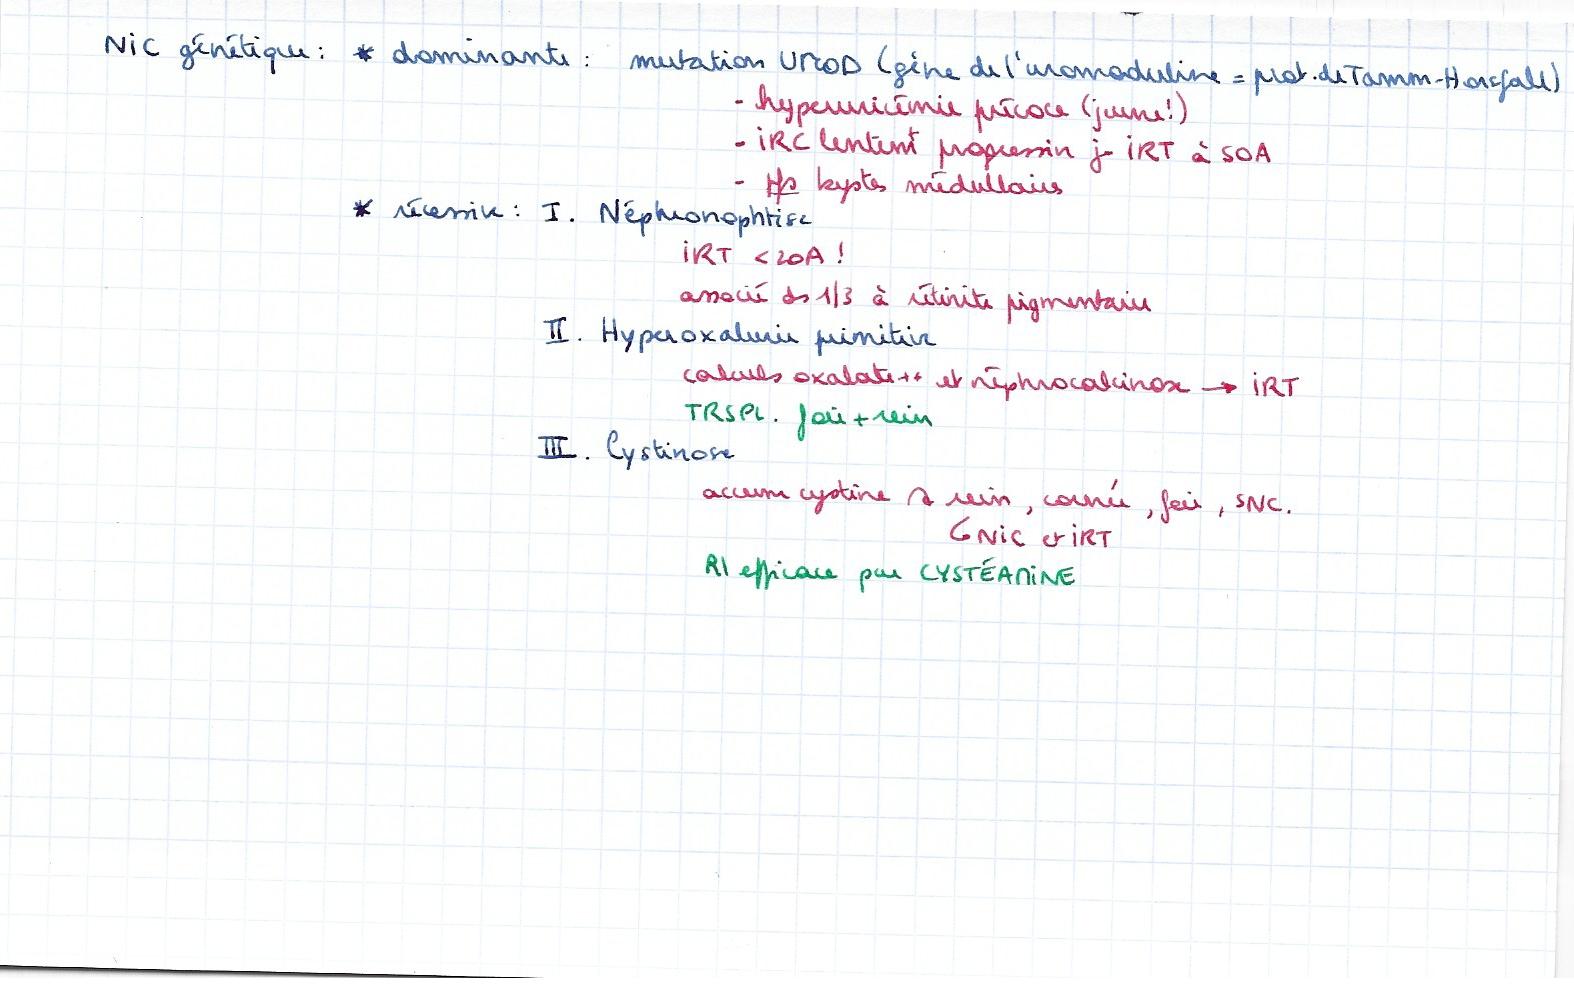 NiC génétique : * dominante : mutation UMOD (gène de l'uromoduline = prot. de Tamm-Horsfall)
- hyperuricémie précoce (jeune!)
- iRC lentemt progressive j- iRT à 50A
- kystes médullaires
* récessive : I. Néphronophtise
iRT < 20A !
associé ds 1/3 à rétinite pigmentaire
II. Hyperoxalurie primitive
calculs oxalate ++ et néphrocalcinose → iRT
TRSPL. foie + rein
III. Cystinose
accum cystine rein, cornée, foie, SNC.
NiC et iRT
efficace par CYSTÉAMiNE